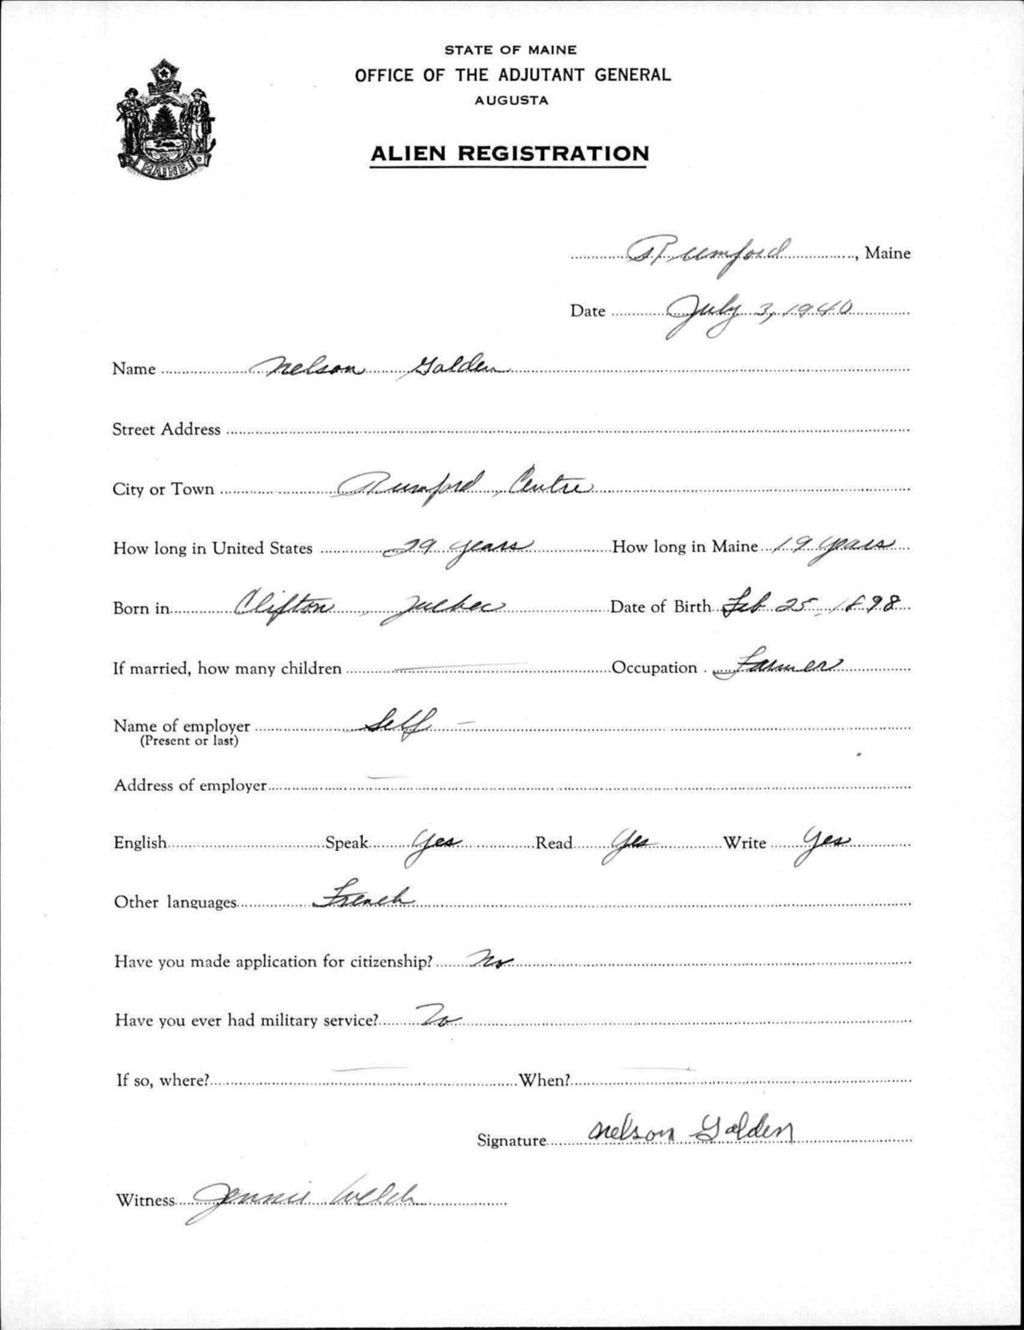 STATE OF MAINE
OFFICE OF THE ADJUTANT GENERAL
AUGUSTA
ALIEN REGISTRATION
MAINE
Rumford, Maine
Date July 3, 1940
Name Nelson Golden
Street Address
City or Town Rumford Centre
How long in United States 29 years How long in Maine 19 years
Born in Clifton, Quebec Date of Birth Feb 25, 1898
If married, how many children — Occupation Farmer
Name of employer Self —
(Present or last)
Address of employer —
English Speak Yes Read Yes Write Yes
Other languages French
Have you made application for citizenship? No
Have you ever had military service? No
If so, where? — When? —
Signature Nelson Golden
Witness Jennie Welch